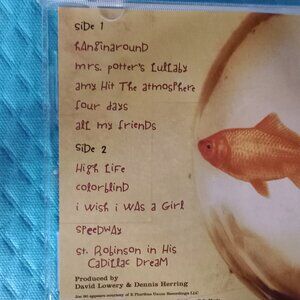 Side 1
hAnginarounD
mrs. potter's LuLLaby
amy Hit The atmosphere
four days
all my friends
Side 2
High Life
colorblinD
i wish i wAs a Girl
speedwAy
st. Robinson in His
CaDillac DreaM
Produced by
David Lowery & Dennis Herring